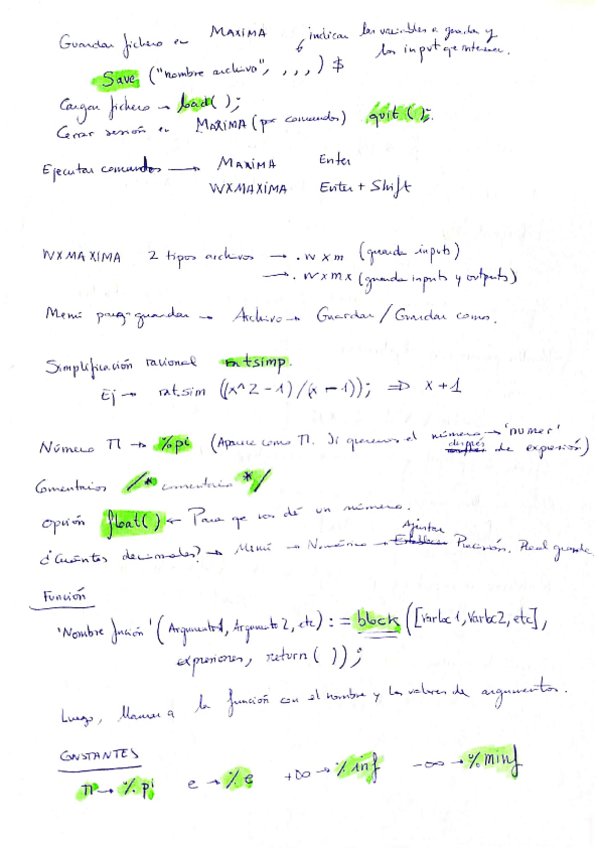 Guardar fichero en MAXIMA indican las variables a guardar y
los input que interesen.
Save ("nombre archivo", , , ,) $
Cargar fichero → load();
Cerrar sesión en MAXIMA (por comandos) quit();
Ejecutar comandos → MAXIMA Enter
WXMAXIMA Enter + Shift
WXMAXIMA 2 tipos archivos → .wxm (guarda inputs)
→ .wxmx (guarda inputs y outputs)
Menú guardar → Archivo → Guardar / Guardar como.
Simplificación racional ratsimp.
Ej → rat.sim ((x^2-1)/(x-1)); ⇒ x+1
Número π → %pi (Aparece como π. Si queremos el número → 'numer'
después de expresión)
Comentarios /* comentario */
Opción float() ← Para que nos dé un número.
¿Cuántos decimales? → Menú → Numérico → Ajustar Precisión. Real grande
Función
'Nombre función' (Argumento1, Argumento2, etc) := block ([Varloc1, Varloc2, etc],
expresiones, return ( ));
Luego, llamar a la función con el nombre y los valores de argumentos.
CONSTANTES
π → %pi e → %e +∞ → %inf -∞ → %minf